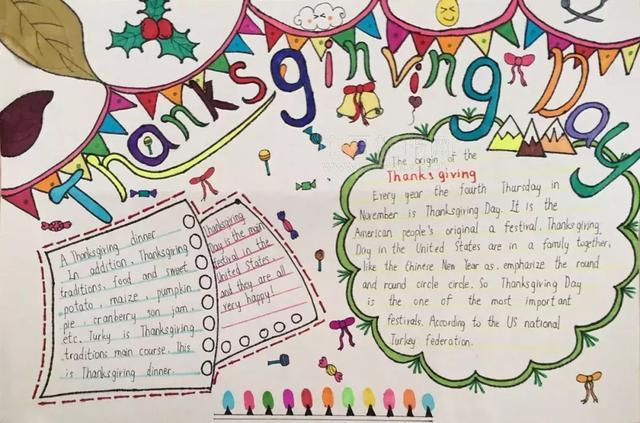 Thanksgiving Day
A Thanksgiving dinner
In addition, Thanksgiving
traditions, food and sweet
potato, maize, pumpkin
pie, cranberry son jam,
etc. Turky is Thanksgiving
traditions main course. This
is Thanksgiving dinner.
Thanksgiving
Day is the main
festival in the
United States,
and they are all
very happy!
The origin of the
Thanks giving
Every year the fourth Thursday in
November is Thanksgiving Day. It is the
American people's original a festival. Thanksgiving
Day in the United States are in a family together,
like the Chinese New Year as, emphasize the round
and round circle circle. So Thanksgiving Day
is the one of the most important
festivals. According to the US national
Turkey federation.